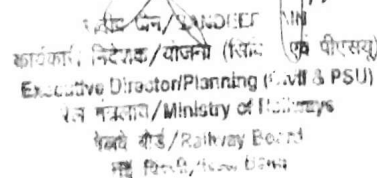 जैन/SANDEEP JAIN
कार्यकारी निदेशक/योजना (सिविल एवं पीएसयू)
Executive Director/Planning (Civil & PSU)
रेल मंत्रालय/Ministry of Railways
रेलवे बोर्ड/Railway Board
नई दिल्ली/New Delhi